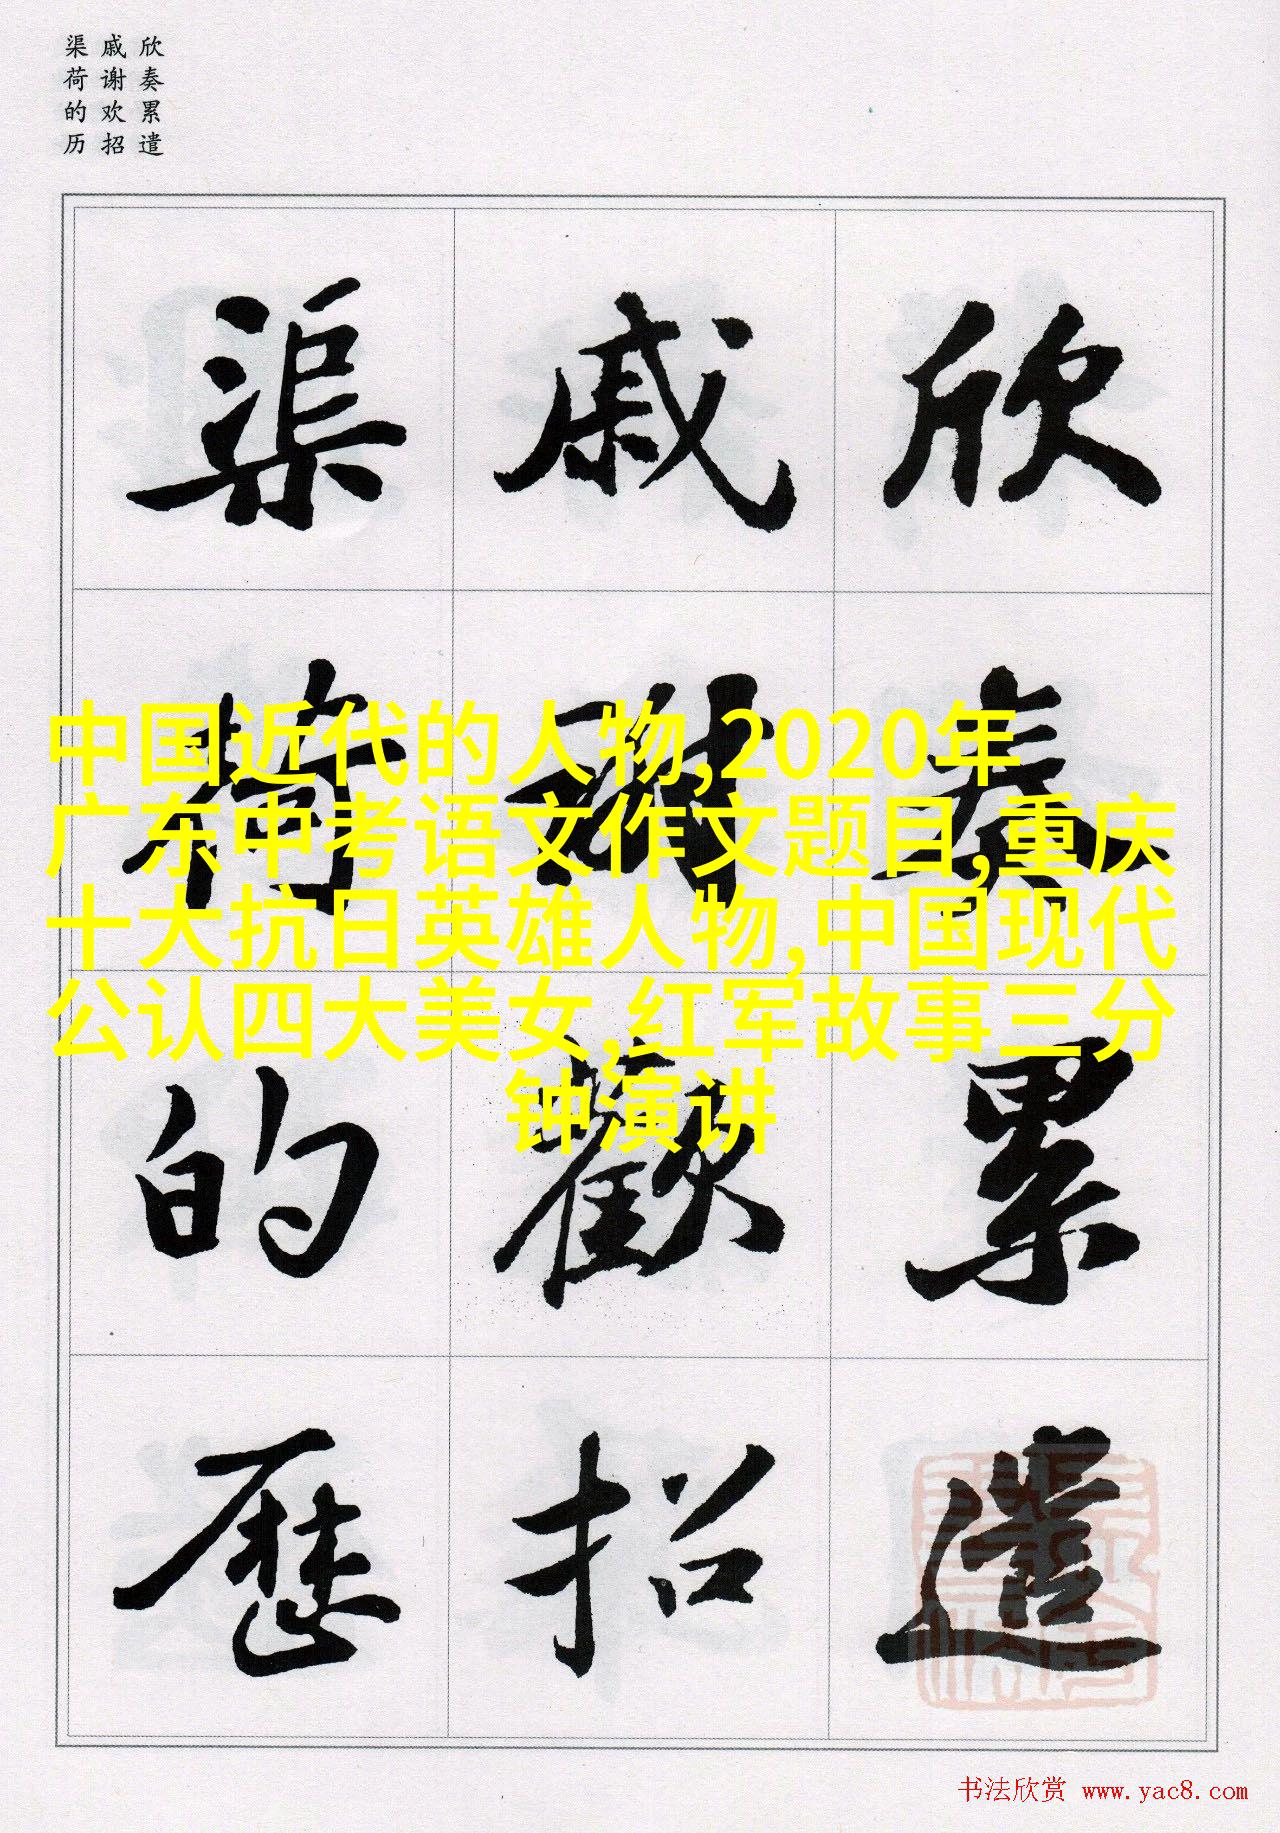 欣奏累遣
戚谢欢招
渠荷的历
欣奏累遣
戚謝歡招
渠荷的歷
中国近代的人物,2020年
广东中考语文作文题目,重庆
十大抗日英雄人物,中国现代
公认四大美女,红军故事三分
钟演讲
书法欣赏 www.yac8.com